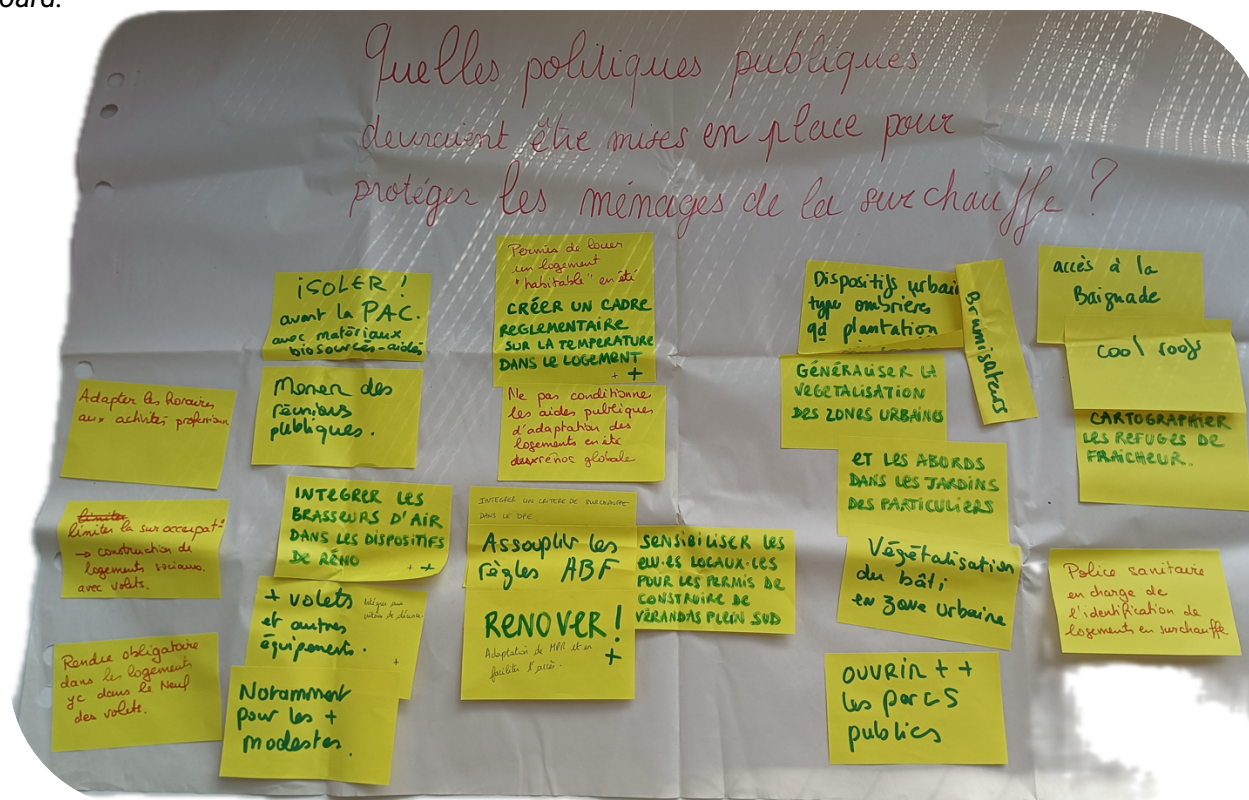 oard.
Quelles politiques publiques
devraient être mises en place pour
protéger les ménages de la surchauffe ?
Adapter les horaires
aux activités
limiter
limiter la suroccupat°
→ construction de
logements sociaux.
avec volets.
Rendre obligatoire
dans les logements
yc dans le Neuf
des volets.
iSOLER !
avant la PAC.
avec matériaux
biosourcés-aidés
Mener des
réunions
publiques.
INTEGRER LES
BRASSEURS D'AIR
DANS LES DISPOSITIFS
DE RÉNO ++
+ volets
et autres
équipements.
+
Notamment
pour les +
modestes.
Permis de louer
un logement
"habitable" en été
CRÉER UN CADRE
REGLEMENTAIRE
SUR LA TEMPERATURE
DANS LE LOGEMENT
++
Ne pas conditionne
les aides publiques
d'adaptation des
logements en été
rénos globale
INTEGRER UN CRITERE DE SURCHAUFFE
DANS LE DPE
Assouplir les
règles ABF
RENOVER !
Adaptation de MPR et en
faciliter l'accès.
+
SENSIBILISER LES
ELU.ES LOCAUX.LES
POUR LES PERMIS DE
CONSTRUIRE DE
VÉRANDAS PLEIN SUD
Dispositifs urbain
type ombrières
qd plantation
Brumisateurs
GÉNÉRALISER LA
VEGETALISATION
DES ZONES URBAINES
ET LES ABORDS
DANS LES JARDINS
DES PARTICULIERS
Végétalisation
du bâti
en zone urbaine
OUVRIR ++
les parcs
publics
accès à la
Baignade
cool roofs
CARTOGRAPHIER
LES REFUGES DE
FRAÎCHEUR.
Police sanitaire
en charge de
l'identification de
logements en surchauffe